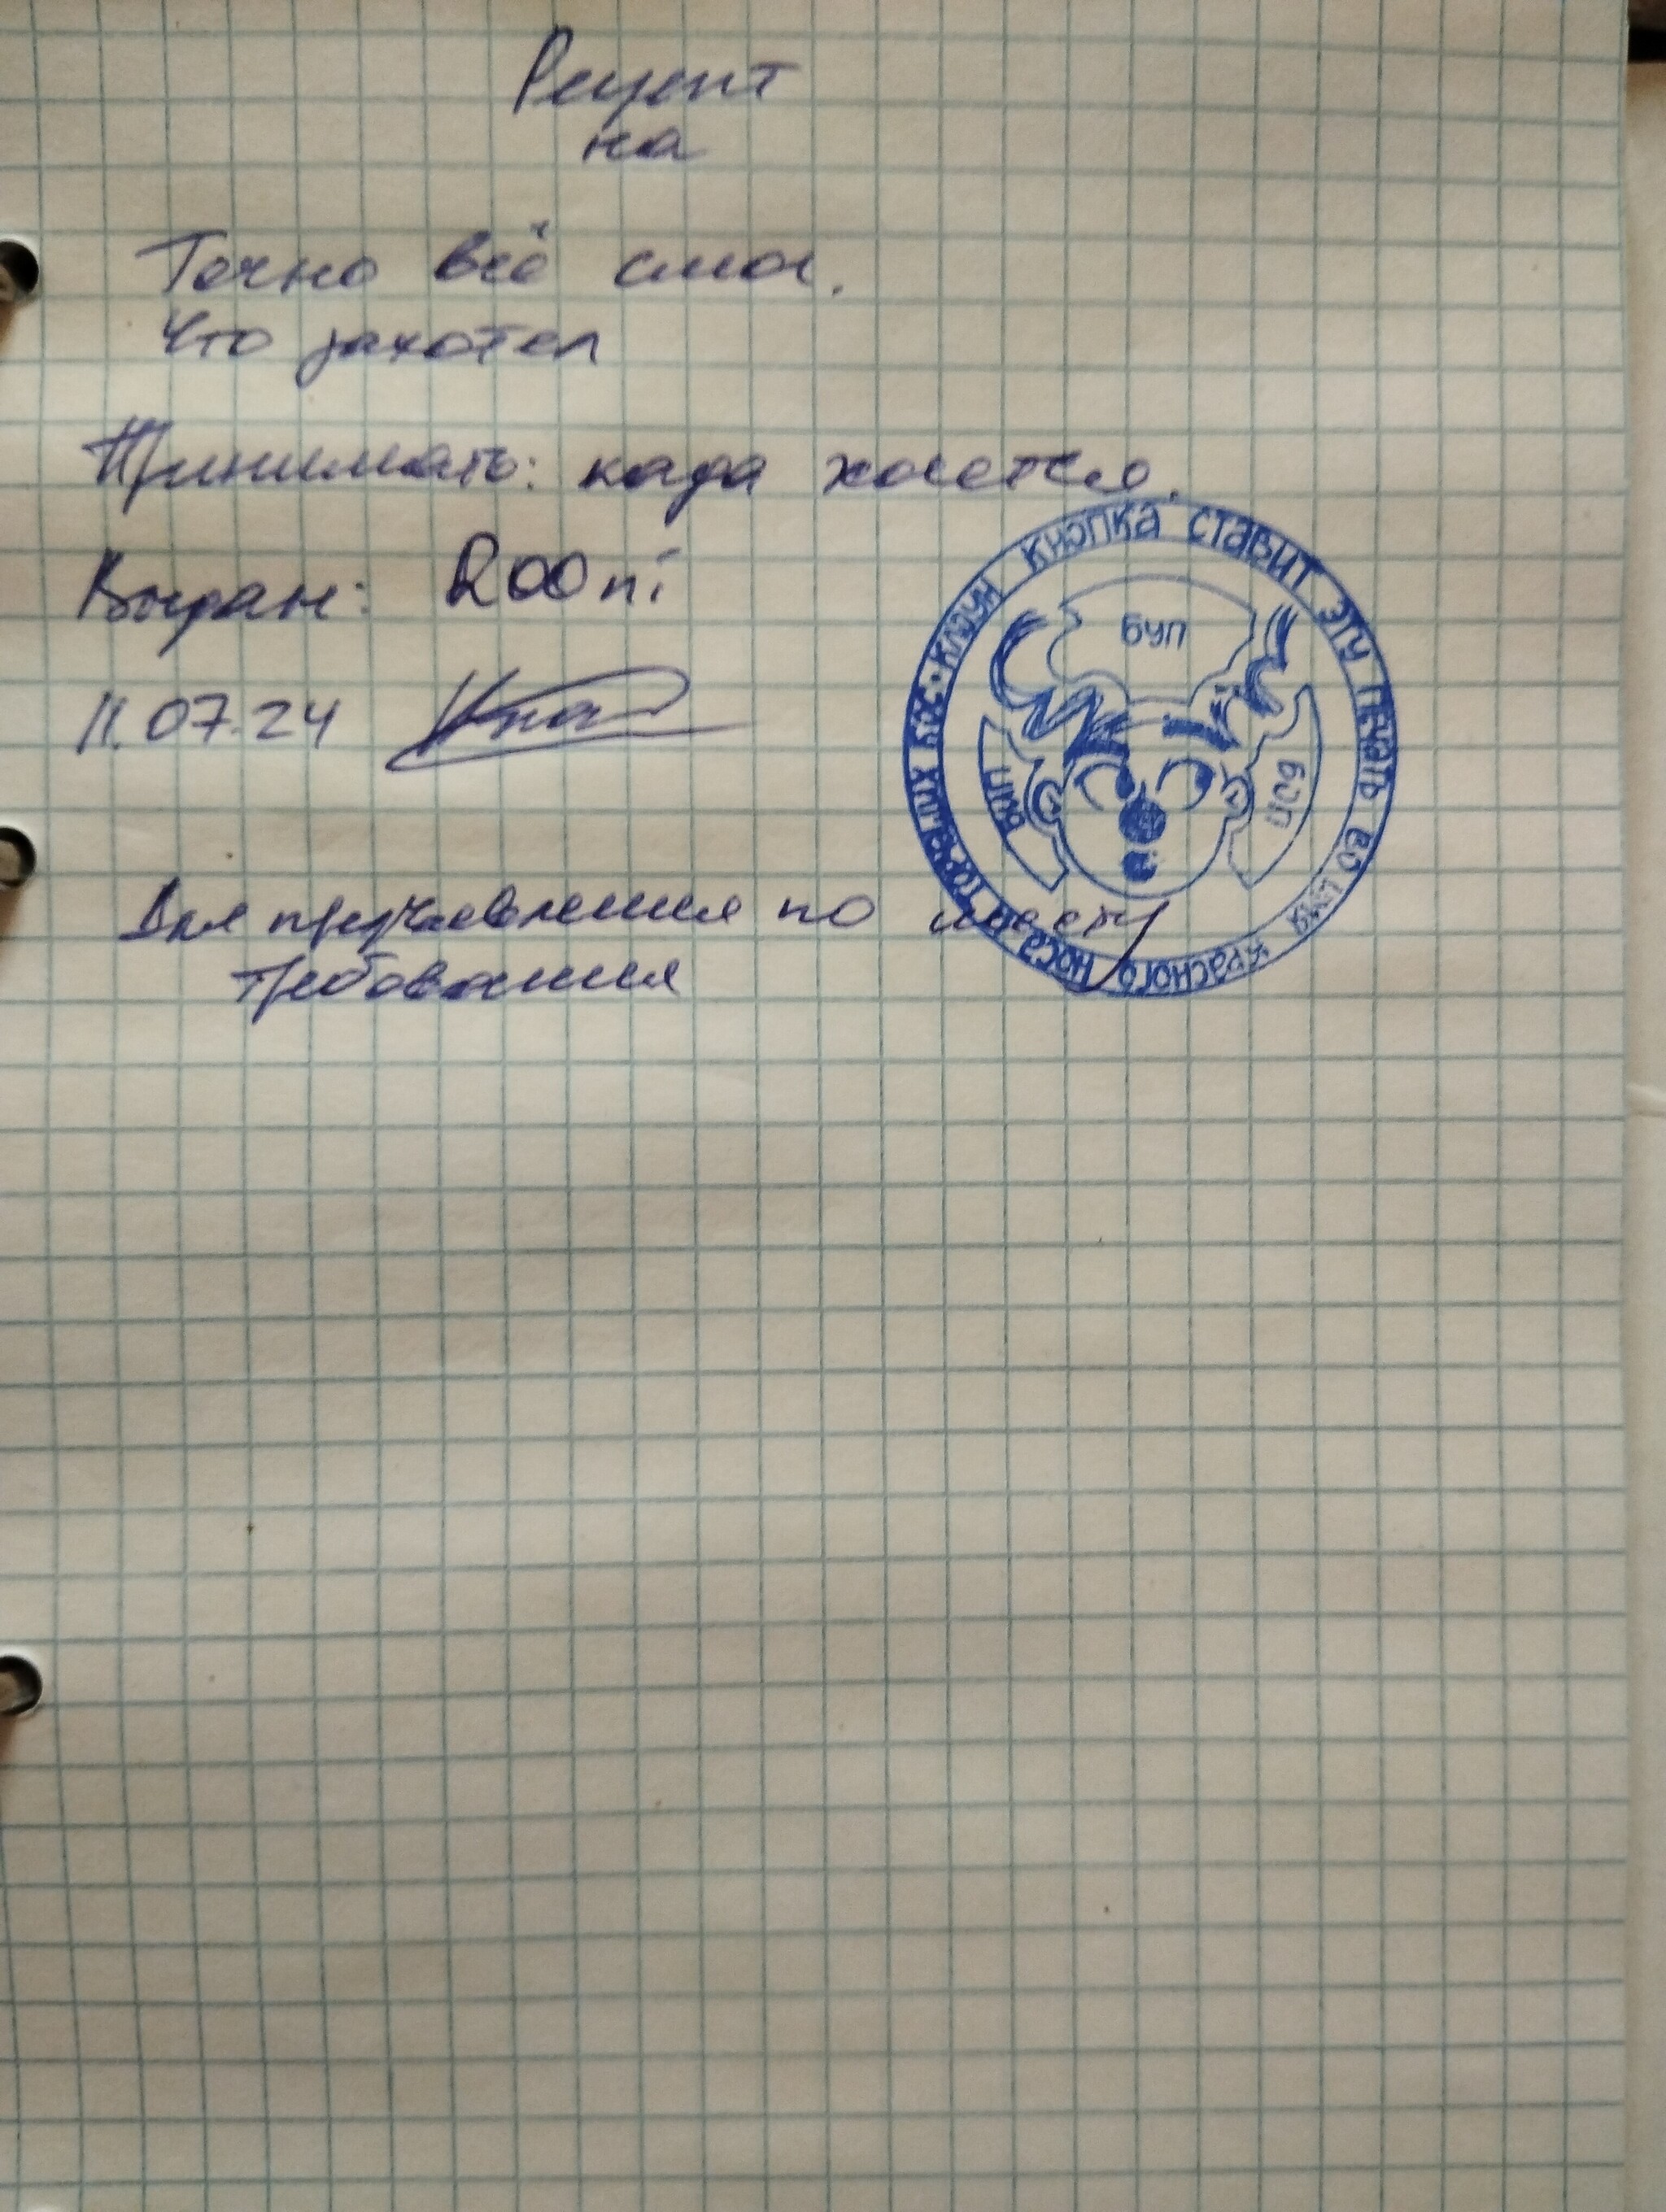 Рецепт
на
Точно всё смог.
Что захотел
Принимать: када хочется.
Выдан: ROOni
11.07.24
Для предъявления по месту
требования
КЛОУН КНОПКА СТАВИТ ЭТУ ПЕЧАТЬ ВО ИМЯ КРАСНОГО НОСА И ТОРЧАЩИХ КОС
БУП
БУП
БОП